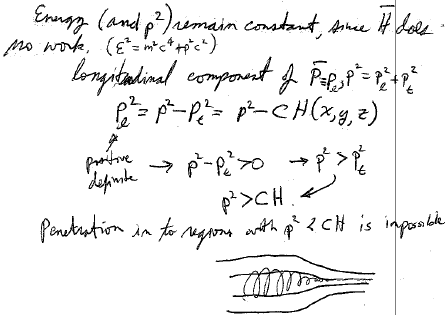 Energy (and p²) remain constant, since H̄ does
no work. (ε² = m²c⁴ + p²c²)
longitudinal component of P̄ = pₑ, p² = pₑ² + pₜ²
pₑ² = p² - pₜ² = p² - CH(x,y,z)
positive definite → p² - pₜ² > 0 → p² > pₜ²
p² > CH.
Penetration in to regions with p² < CH is impossible